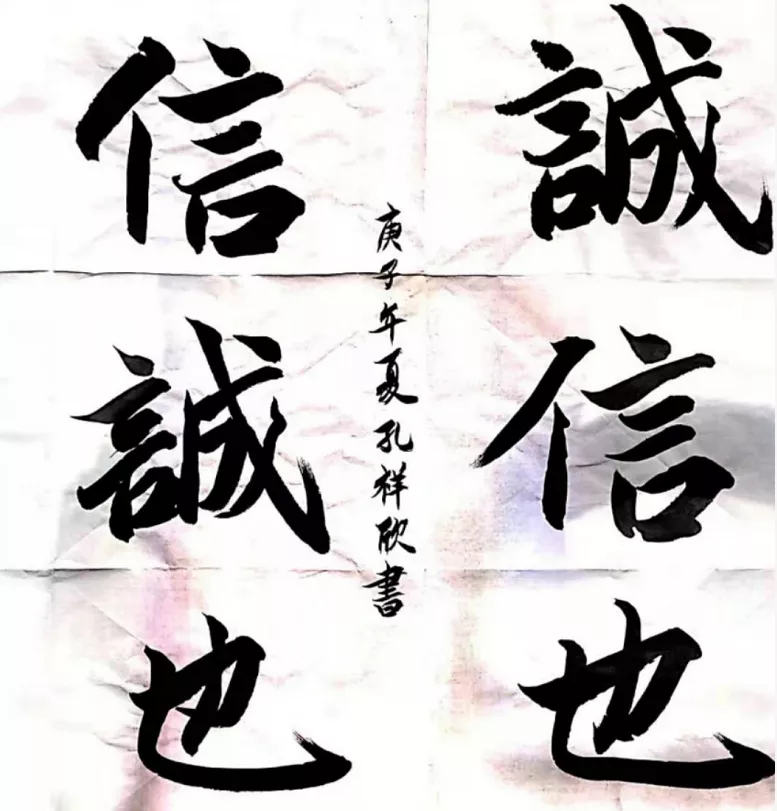 誠信也
庚子年夏孔祥欣書
信誠也